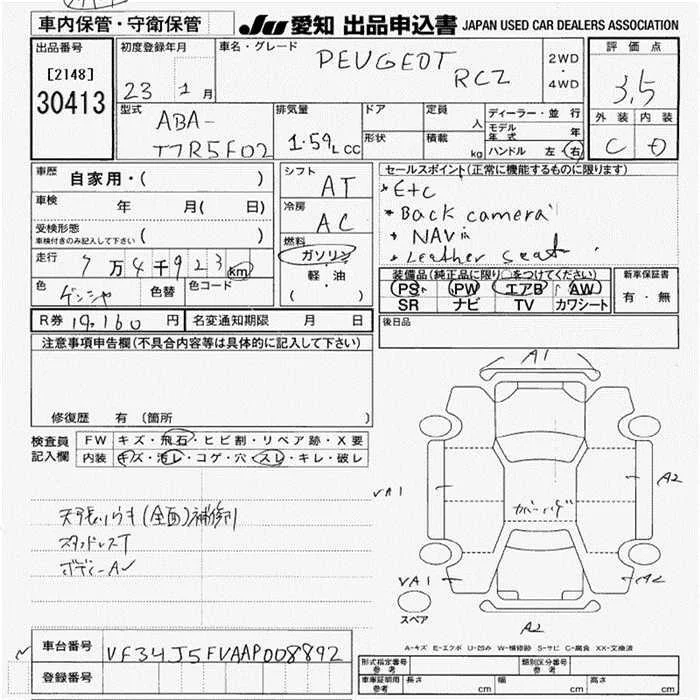 車内保管・守衛保管
JU 愛知 出品申込書 JAPAN USED CAR DEALERS ASSOCIATION
出品番号 初度登録年月 車名・グレード 評価点
[2148] 30413
23 1月
PEUGEOT RCZ
2WD・4WD
3.5
型式 排気量 ドア 定員 人 ディーラー・並行
外装 内装
ABA-
T7R5F02
1.59L CC
形状 積載 kg
モデル年式 年
ハンドル 左 右
C D
車歴 自家用・( )
シフト AT
セールスポイント(正常に機能するものに限ります)
* Etc
* Back camera
* NAVi
* Leather seat
車検 年 月( 日)
冷房 AC
受検形態
車検付きのみ記入して下さい ( )
燃料 ガソリン
軽・油
( )
走行 7万4千923 km
装備品(純正品に限り○をつけてください)
新車保証書
PS PW エアB AW
有・無
SR ナビ TV カワシート
色 ゲンシャ 色替 色コード
R券 19,160 円 名変通知期限 月 日
後日品
注意事項申告欄(不具合内容等は具体的に記入して下さい)
修復歴 有 (箇所 )
検査員記入欄
FW キズ・飛石・ヒビ割・リペア跡・X要
内装 キズ・汚レ・コゲ・穴・スレ・キレ・破レ
A1
A2
A1
カバーハゲ
天張りウキ(全面)補修刂
スタッドレスT
ボディーA
A1
A2
スペア
A2
A-キズ E-エクボ U-凹み W-補修跡 S-サビ C-腐食 XX-交換済
車台番号 VF34J5FVAAP008892
登録番号
形式指定番号 参考 類別区分番号 参考
車庫証明用 参考 長さ cm 幅 cm 高さ cm